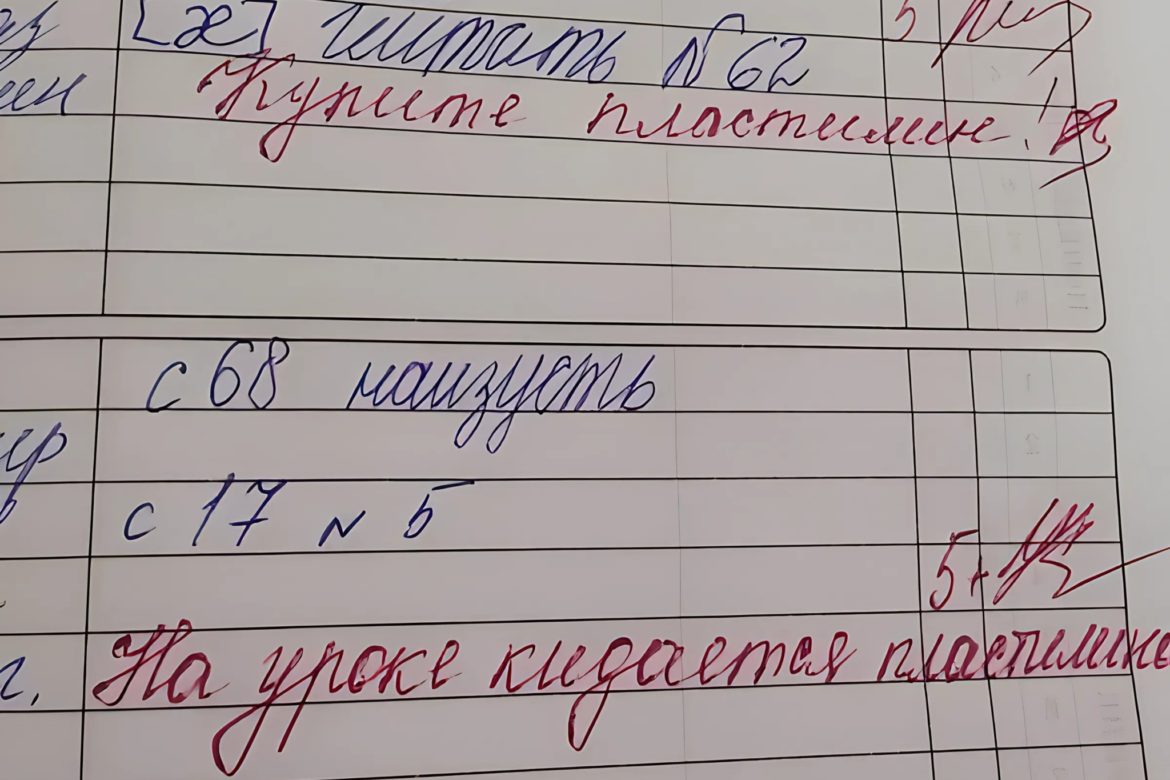 [æ] читать №62 5
Купите пластилин!
с 68 наизусть
с 17 № 5
5+
На уроке кидается пластилино